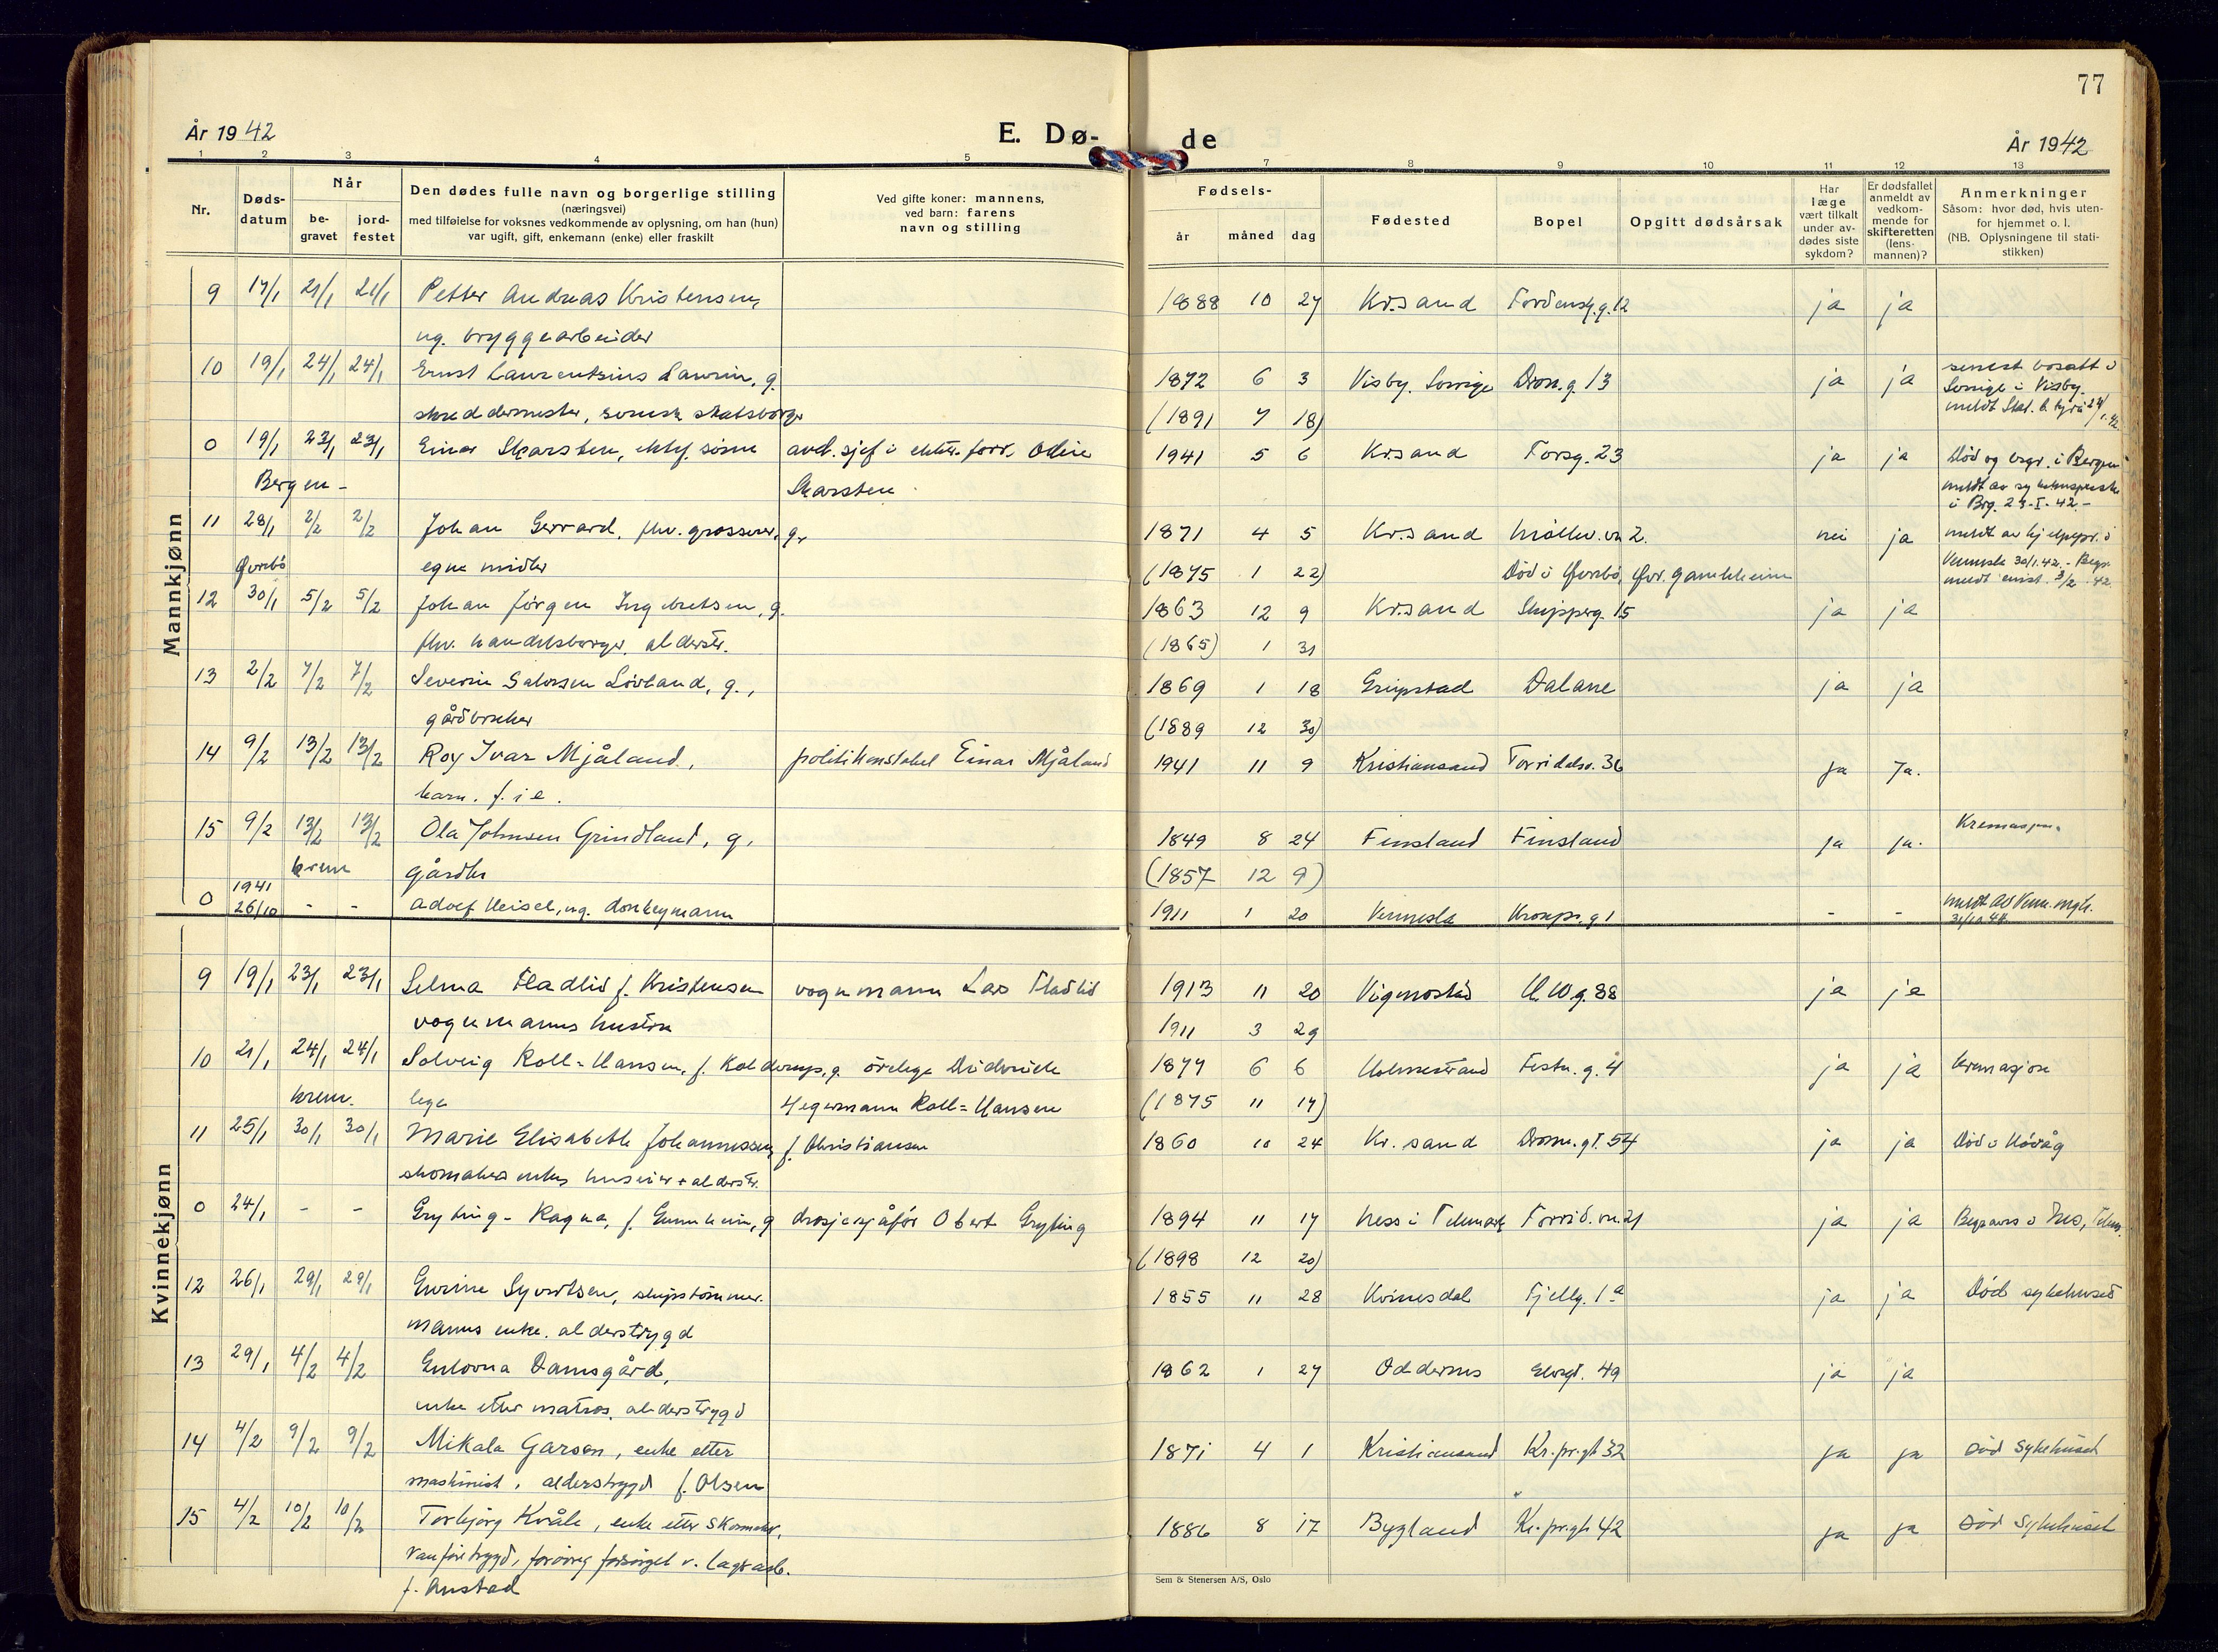 77
År 1942
E. Dø-
de
År 1942
1 2 3 4 5
7 8 9 10 11 12 13
Nr.
Døds-
datum
Når
be-
gravet
jord-
festet
Den dødes fulle navn og borgerlige stilling
(næringsvei)
med tilføielse for voksnes vedkommende av oplysning, om han (hun)
var ugift, gift, enkemann (enke) eller fraskilt
Ved gifte koner: mannens,
ved barn: farens
navn og stilling
Fødsels-
år måned dag
Fødested
Bopel
Opgitt dødsårsak
Har
læge
vært tilkalt
under av-
dødes siste
sykdom?
Er dødsfallet
anmeldt av
vedkom-
mende for
skifteretten
(lens-
mannen)?
Anmerkninger
Såsom: hvor død, hvis uten-
for hjemmet o. l.
(NB. Oplysningene til stati-
stikken)
Mannkjønn
9 17/1 21/1 21/1 Petter Andreas Kristensen, 1888 10 27 Kr.sand ja ja
ug. bryggearbeider
10 19/1 24/1 24/1 Ernst Laurentzius Laurin, g. 1872 6 3 Visby, Sverige Dronn.g. 13 ja ja senest bosatt i
Sverige i Visby.
skreddermester, svensk statsborger (1891 7 18)
0 19/1 23/1 23/1 Einar Skarstein, ektef. sønn avd. sjef i elektr. forr. Odin 1941 5 6 Kr.sand Torsg. 23 ja ja Død og begr. i Bergen
Bergen - Skarstein
i Brg. 23-I-42.-
11 28/1 2/2 2/2 Johan Gerrard, fhv. grosserer, g. 1871 4 5 Kr.sand Møllev. 2. nei ja
Øvrebø egne midler (1875 1 22) Død i Øvrebø, Øvr. gamleheim
Vennesla 30/1.42.
12 30/1 5/2 5/2 Johan Jørgen Ingebretsen, g. 1863 12 9 Kr.sand Skipperg. 15 ja ja
fhv. handelsborger, alderstr. (1865) 1 31
13 2/2 7/2 7/2 Severin Salvesen Løvland, g., 1869 1 18 Greipstad Dalane ja ja
gårdbruker (1889 12 30)
14 9/2 13/2 13/2 Roy Ivar Mjåland, politikonstabel Einar Mjåland 1941 11 9 Kristiansand Torridalsv. 36 ja Ja.
barn. f. i e.
15 9/2 13/2 13/2 Ola Johnsen Grindland, g. 1849 8 24 Finsland Finsland ja ja. Kremasjon.
krem gårdbr (1857 12 9)
0 1941
26/10 - - Adolf Heisel, ug. donkeymann 1911 1 20 Vennesla Kronpr.g 1 - -
Kvinnekjønn
9 19/1 23/1 23/1 Selma Fladlid f. Kristensen vognmann Lars Fladlid 1913 11 20 Vigmostad H.W.g. 88 ja ja
vognmanns hustru 1911 3 29
10 21/1 24/1 24/1 Solveig Roll-Hansen, f. Kolderup, g. ørelege Diderich 1877 6 6 Holmestrand Festn.g. 4 ja ja kremasjon
krem. lege Hegermann Roll-Hansen (1875 11 17)
11 25/1 30/1 30/1 Marie Elisabeth Johannessen, f. Christiansen 1860 10 24 Kr.sand Dronn.gt. 54 ja ja Død i Høvåg
skomakers enke, husleier + alderstr.
0 24/1 - - Gryting - Ragna, f. Gunnheim, g drosjesjåfør Obert Gryting 1894 11 17 Ness i Telemark Torrid.vn. 21 ja ja Begraves i Nes, Telem.
(1898 12 20)
12 26/1 29/1 29/1 Gurine Syvertsen, skipstømmer- 1855 11 28 Kvinesdal Fjellg. 1a ja ja Død sykehuset
manns enke. alderstrygd
13 29/1 4/2 4/2 Gulovna Damsgård, 1862 1 27 Oddernes Elvegt. 49 ja ja
enke etter matros, alderstrygd
14 4/2 9/2 9/2 Mikala Garson, enke etter 1871 4 1 Kristiansand Kr.pr.gt 32 ja ja Død Sykehuset
maskinist, alderstrygd f. Olsen
15 4/2 10/2 10/2 Torbjørg Kvåle, enke etter skomaker, 1886 8 17 Bygland Kr.pr.gt 42 ja ja Død Sykehuset
vanføretrygd, forøvrig forsørget v.
f. Austad
Sem & Stenersen A/S, Oslo